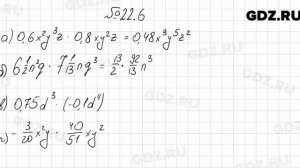 GDZ.RU
№22.6
а) 0,6x²y³z · 0,8xy²z = 0,48x³y⁵z²
б) 6 1/2 n²q · 7 1/13 nq³ = 13/2 · 92/13 n³
в) 0,75d³ · (-0,1d⁴)
г) - 3/20 x²y · 40/51 xy²
GDZ.RU